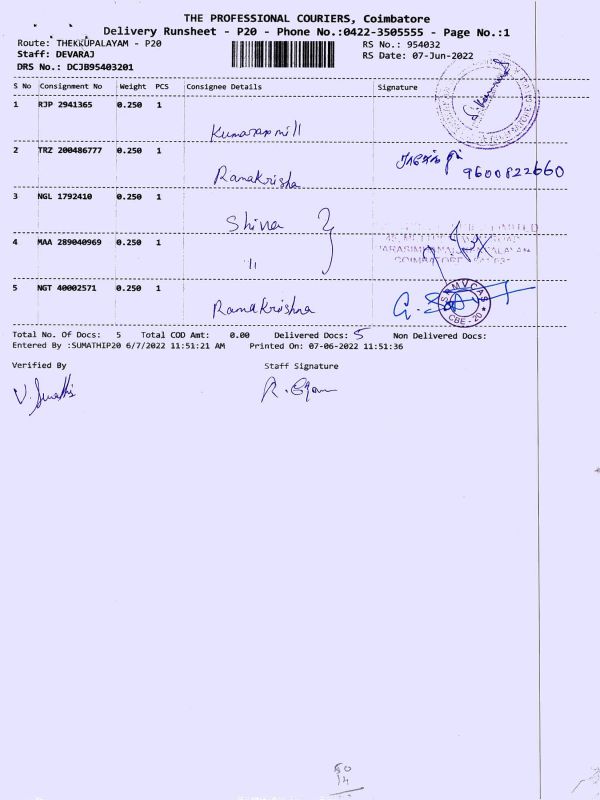 THE PROFESSIONAL COURIERS, Coimbatore
Delivery Runsheet - P20 - Phone No.:0422-3505555 - Page No.:1
Route: THEKKUPALAYAM - P20 RS No.: 954032
Staff: DEVARAJ RS Date: 07-Jun-2022
DRS No.: DCJB95403201
S No Consignment No Weight PCS Consignee Details Signature
1 RJP 2941365 0.250 1
2 TRZ 200486777 0.250 1
Ramakrisha 9600822660
3 NGL 1792410 0.250 1
Shiva
4 MAA 289040969 0.250 1
"
5 NGT 40002571 0.250 1
Ramakrishna
SRMVCAS
CBE - 20
Total No. Of Docs: 5 Total COD Amt: 0.00 Delivered Docs: 5 Non Delivered Docs:
Entered By :SUMATHIP20 6/7/2022 11:51:21 AM Printed On: 07-06-2022 11:51:36
Verified By Staff Signature
50
14